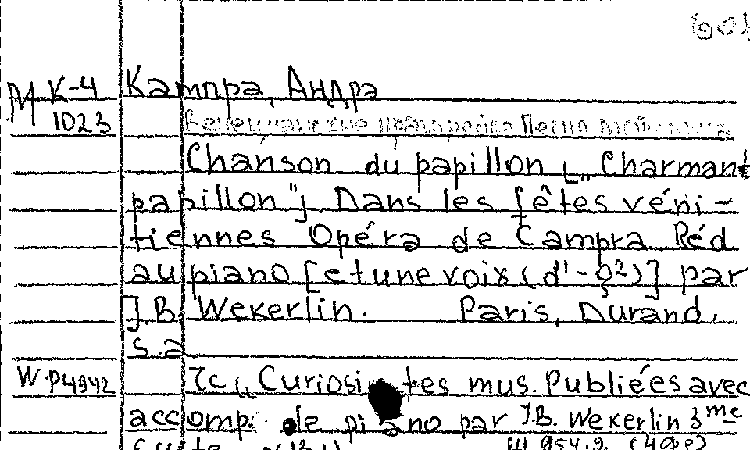 601
М К-4 Кампра, Андра
1023
Chanson du papillon („Charmant
papillon") Dans les fêtes véni-
tiennes Opéra de Campra Réd
au piano [et une voix (d¹-g²)] par
J.B. Wekerlin. Paris, Durand,
s.a
W P4942 7c „Curiosi tes mus. Publiées avec
accomp. de piano par J.B. Wekerlin 3me